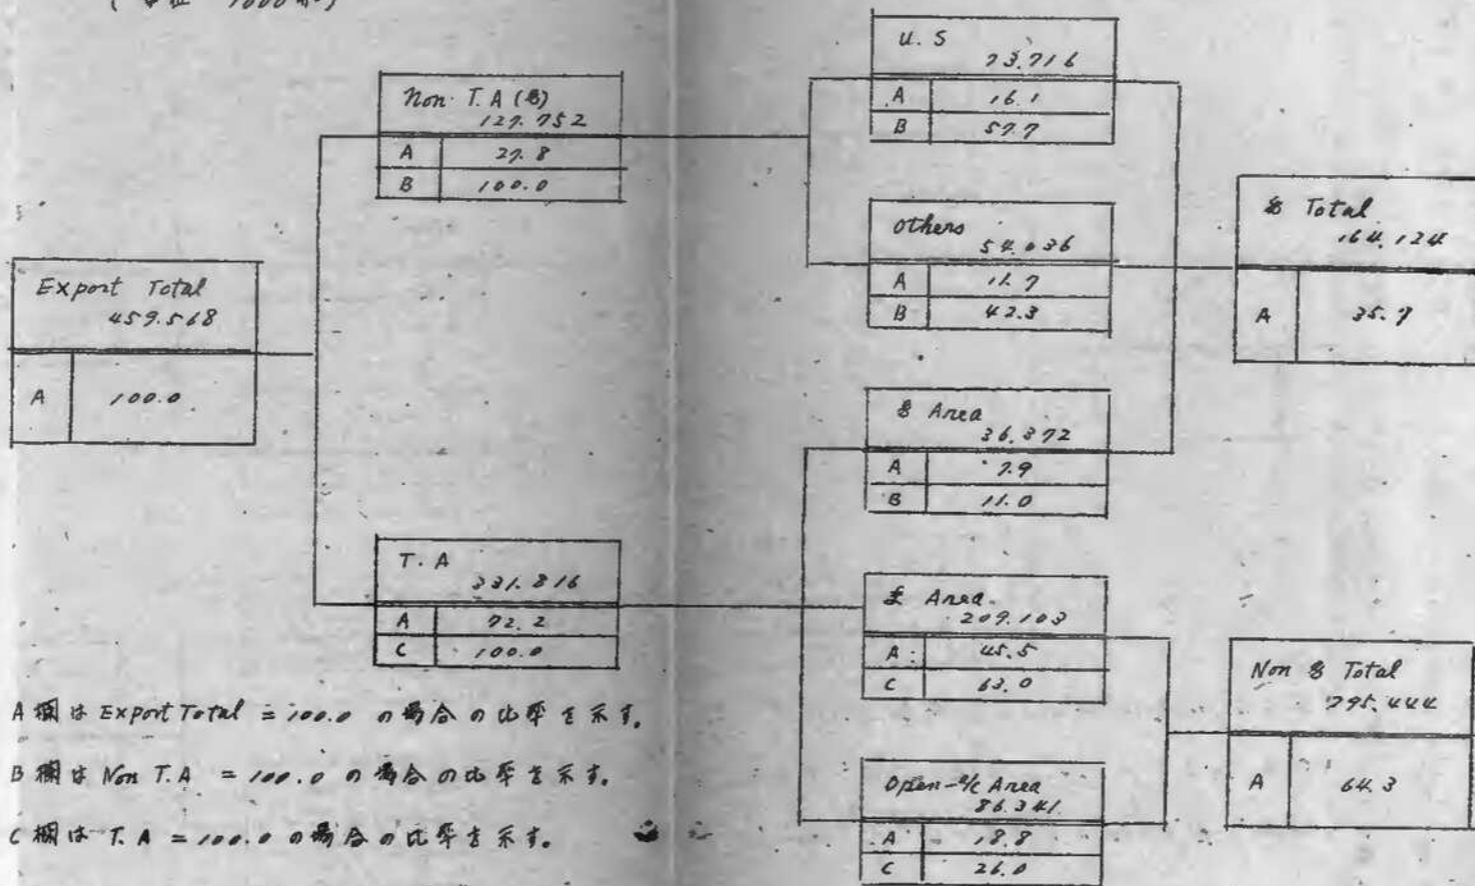 (単位 1000
Export Total
459.568
A 100.0
Non T.A ($)
127.752
A 27.8
B 100.0
T.A
331.816
A 72.2
C 100.0
U.S
73.716
A 16.1
B 57.7
others
54.036
A 11.7
B 42.3
$ Area
36.372
A 7.9
B 11.0
£ Area
209.103
A 45.5
C 63.0
Open-a/c Area
86.341
A 18.8
C 26.0
$ Total
164.124
A 35.7
Non $ Total
295.444
A 64.3
A欄は Export Total = 100.0 の場合の比率を示す。
B欄は Non T.A = 100.0 の場合の比率を示す。
C欄は T.A = 100.0 の場合の比率を示す。